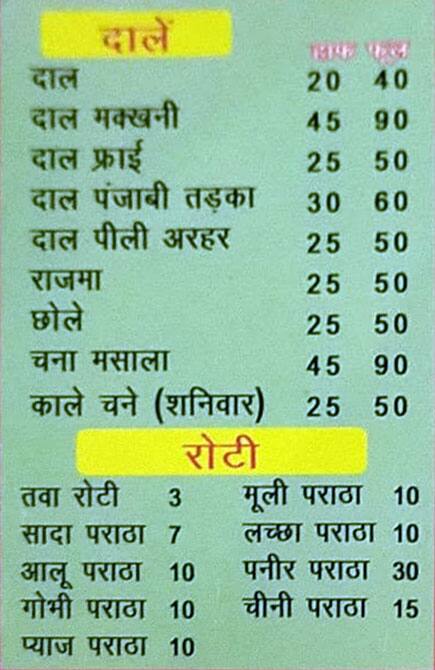 दालें
हाफ फुल
दाल 20 40
दाल मक्खनी 45 90
दाल फ्राई 25 50
दाल पंजाबी तड़का 30 60
दाल पीली अरहर 25 50
राजमा 25 50
छोले 25 50
चना मसाला 45 90
काले चने (शनिवार) 25 50
रोटी
तवा रोटी 3 मूली पराठा 10
सादा पराठा 7 लच्छा पराठा 10
आलू पराठा 10 पनीर पराठा 30
गोभी पराठा 10 चीनी पराठा 15
प्याज पराठा 10